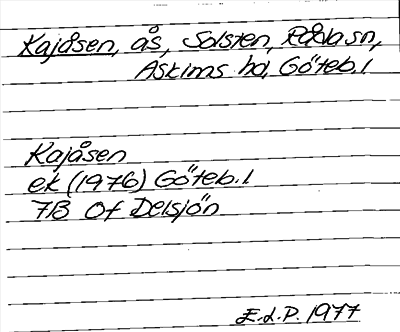 Kajåsen, ås, Solsten, Råda sn,
Askims hd, Göteb. l
Kajåsen
ek (1976) Göteb. l
7B Of Delsjön
E.d.P. 1977